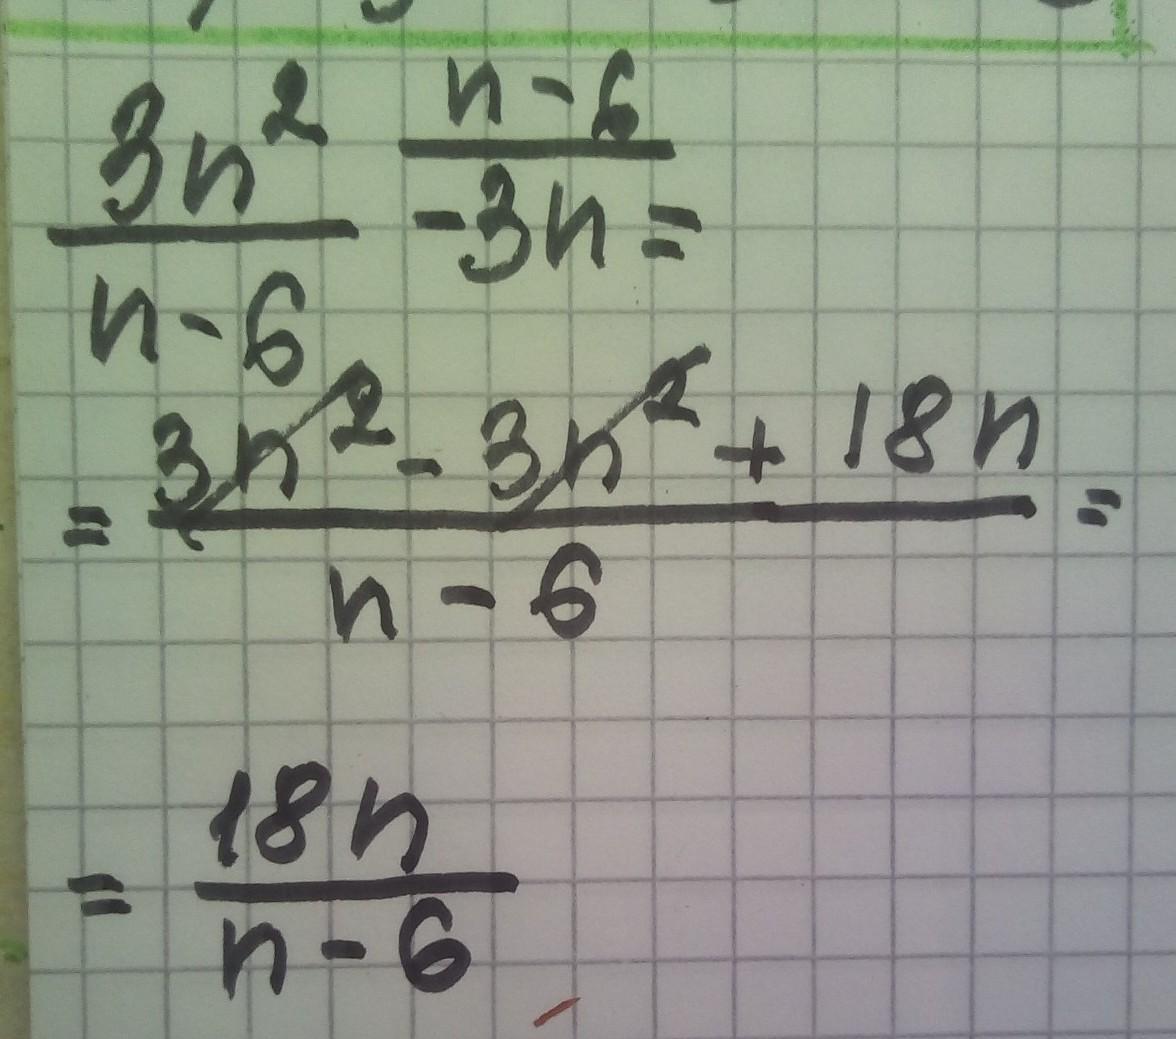 3n² / n - 6 n - 6 / - 3n =
= 3n² - 3n² + 18n / n - 6 =
= 18n / n - 6